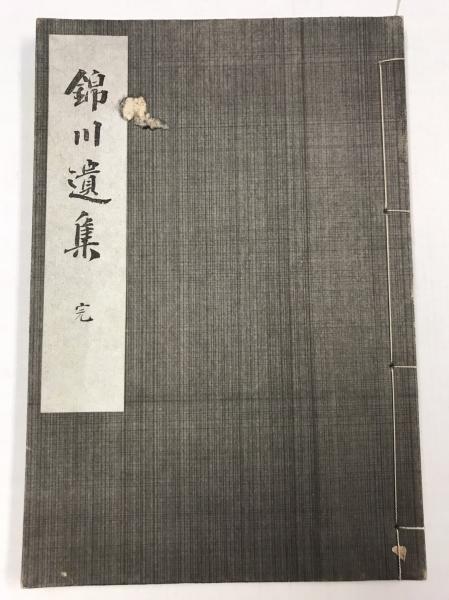 錦川遺集 完